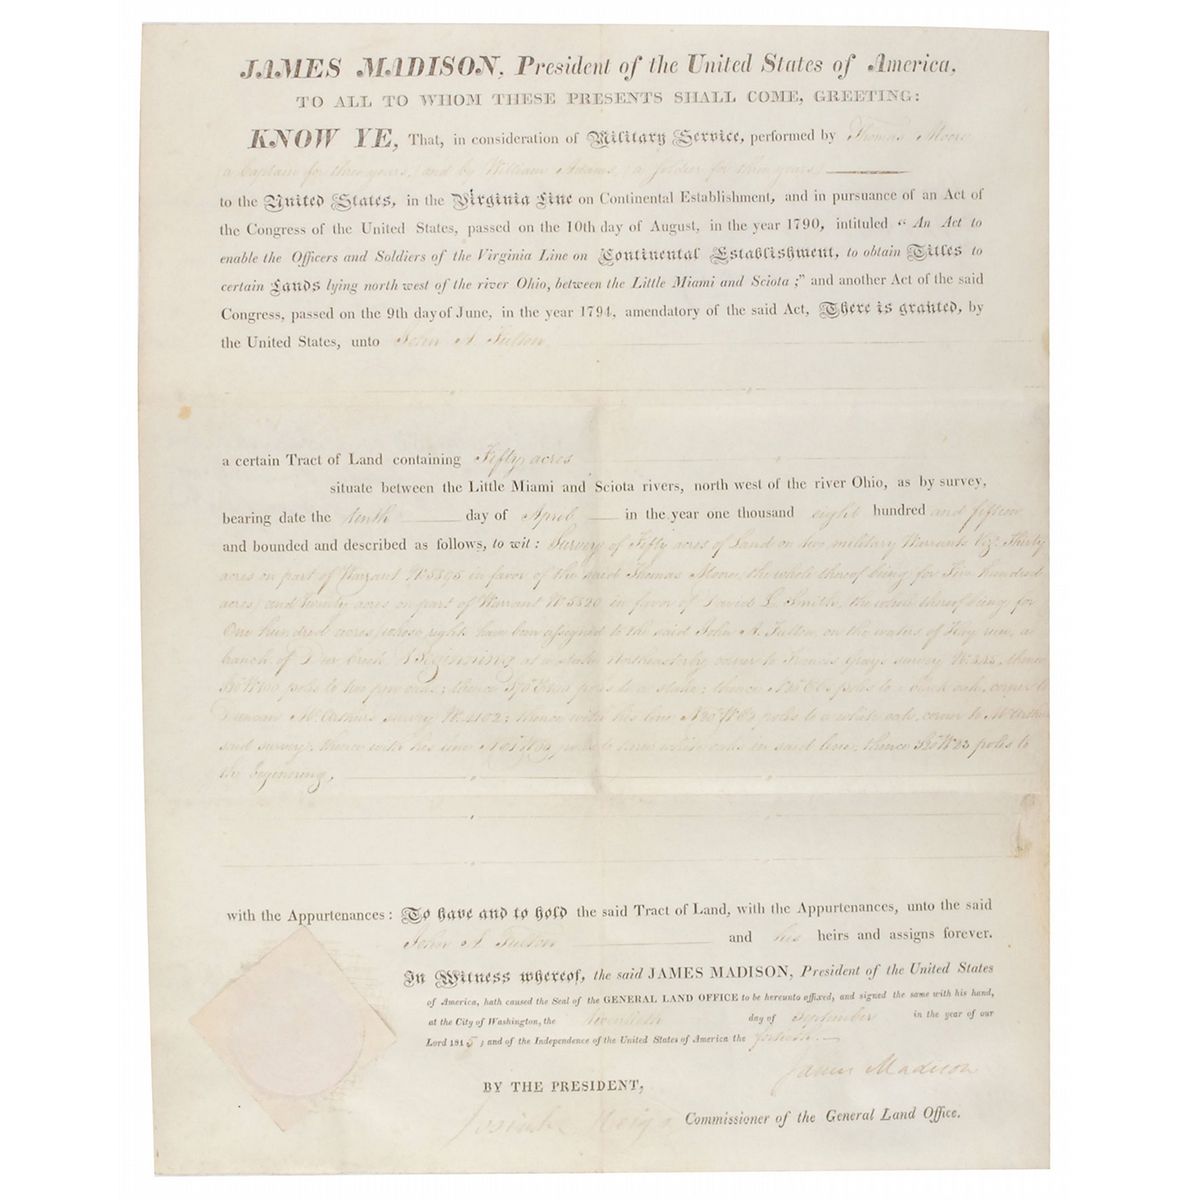 JAMES MADISON, President of the United States of America,
TO ALL TO WHOM THESE PRESENTS SHALL COME, GREETING:
KNOW YE, That, in consideration of Military Service, performed by Thomas Moore
(a Captain for three years,) and by William Adams, (a soldier for three years)
to the United States, in the Virginia Line on Continental Establishment, and in pursuance of an Act of
the Congress of the United States, passed on the 10th day of August, in the year 1790, intituled "An Act to
enable the Officers and Soldiers of the Virginia Line on Continental Establishment, to obtain Titles to
certain Lands lying north west of the river Ohio, between the Little Miami and Sciota;" and another Act of the said
Congress, passed on the 9th day of June, in the year 1794, amendatory of the said Act, There is granted, by
the United States, unto John A. Fulton
a certain Tract of Land containing Fifty acres
situate between the Little Miami and Sciota rivers, north west of the river Ohio, as by survey,
bearing date the tenth day of April in the year one thousand eight hundred and fifteen
and bounded and described as follows, to wit: Survey of Fifty acres of Land on two military Warrants viz. Thirty
acres on part of Warrant No. 5395 in favor of the said Thomas Moore, the whole thereof being for Five hundred
acres) and Twenty acres on part of Warrant No. 5320 in favor of David L. Smith, the whole thereof being for
One hundred acres) whose rights have been assigned to the said John A. Fulton, on the waters of Hay run, a
branch of Deer creek. Beginning at a stake Northeasterly corner to Francis Grays survey No. thence
poles to two thence poles to a stake; thence poles to a black oak, corner to
Duncan McArthur's survey No. 4102; thence with his line poles to a white oak, corner to McArthur
said survey; thence with his line poles to three white oaks in said line; thence poles to
the beginning,
with the Appurtenances: To have and to hold the said Tract of Land, with the Appurtenances, unto the said
John A. Fulton and his heirs and assigns forever.
In Witness whereof, the said JAMES MADISON, President of the United States
of America, hath caused the Seal of the GENERAL LAND OFFICE to be hereunto affixed, and signed the same with his hand,
at the City of Washington, the twentieth day of September in the year of our
Lord 1815; and of the Independence of the United States of America the fortieth.
James Madison
BY THE PRESIDENT,
Josiah Meigs Commissioner of the General Land Office.